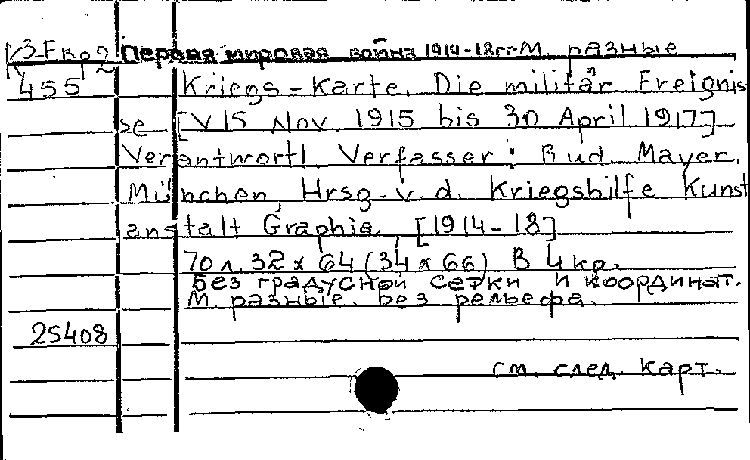 К3-Евр2 Первая мировая война 1914-18гг. М. разные
455 Kriegs-Karte. Die militär Ereignis
se [V 15 Nov. 1915 bis 30 April 1917]
Verantwortl Verfasser: Rud Mayer.
München, Hrsg. v. d. Kriegshilfe Kunst
anstalt Graphia, [1914-18]
70 л. 32 x 64 (34 x 66) В 4 кр.
Без градусной сетки и координат.
М. разные. Без рельефа.
25408
см. след. карт.